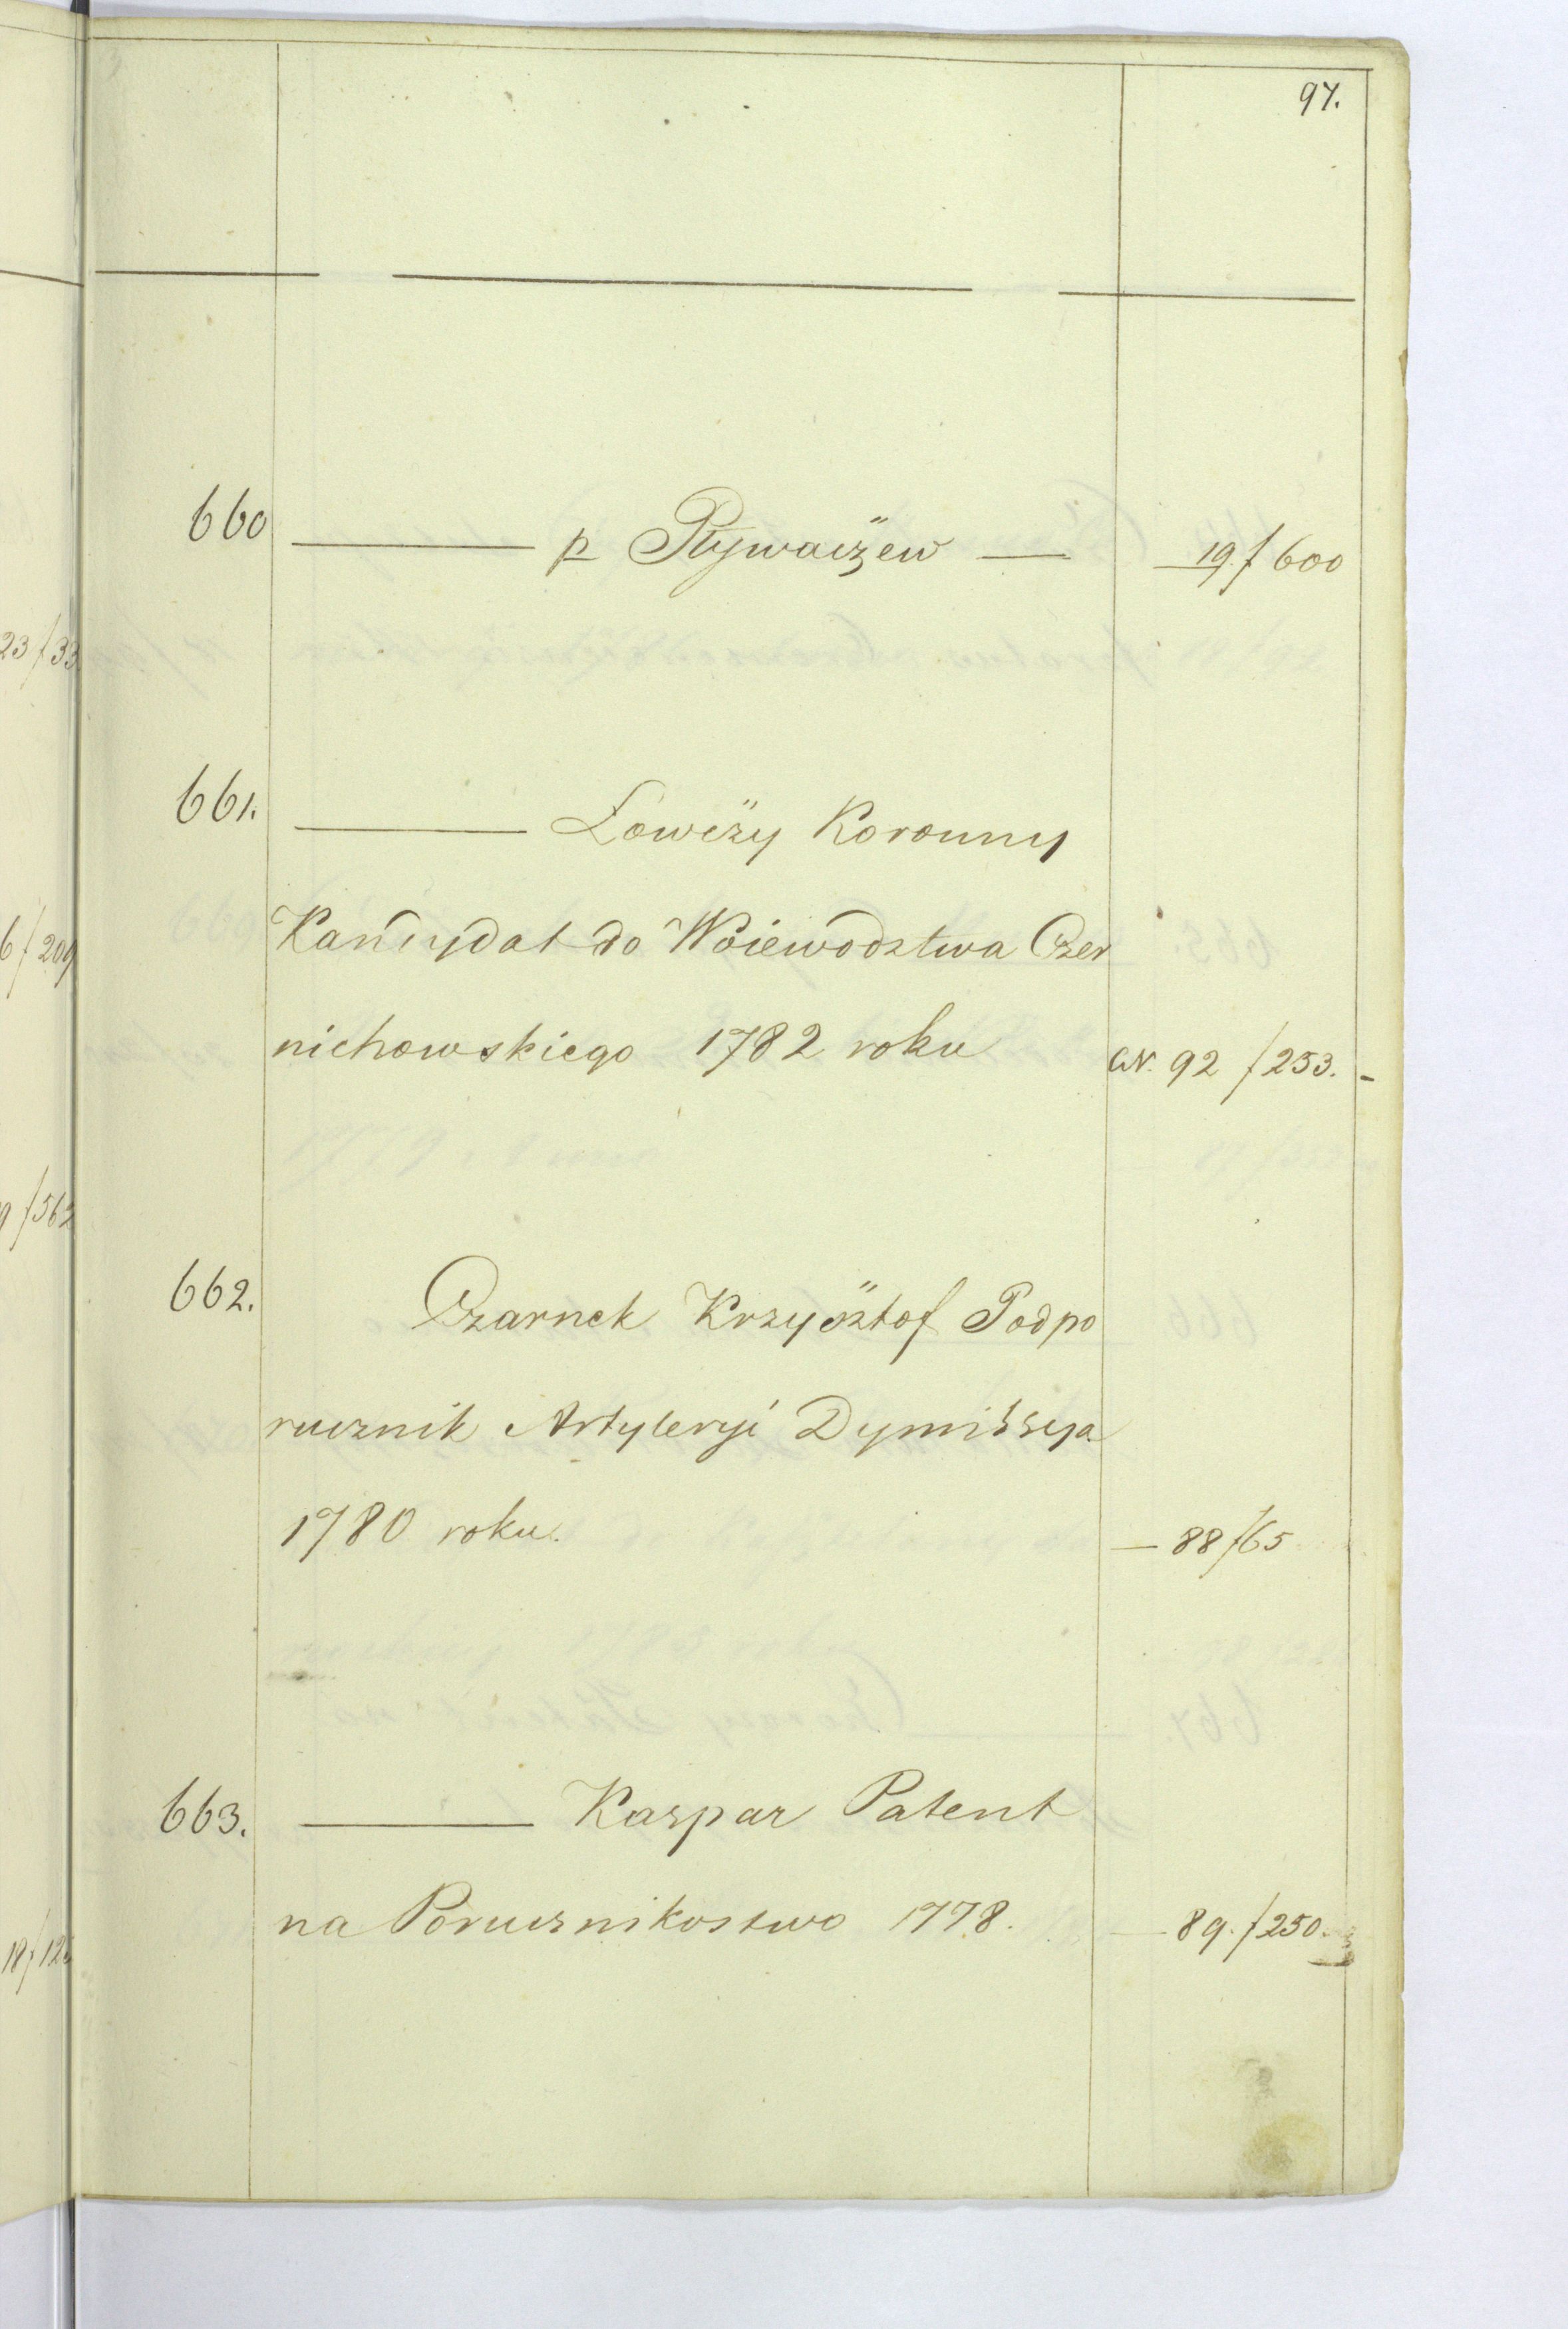 97.
660 — p Pływaczew — 19 f 600
661. — Łowczy Koronny
Kandydat do Woiewodztwa Czer
nichowskiego 1782 roku W. 92 f 253. -
662. Czarnek Krzysztof Podpo
rucznik Artyleryi Dymissya
1780 roku. — 88 f 65
663. — Kaspar Patent
na Porucznikostwo 1778. — 89. f 250.
23 f 33
6 f 209
9 f 562